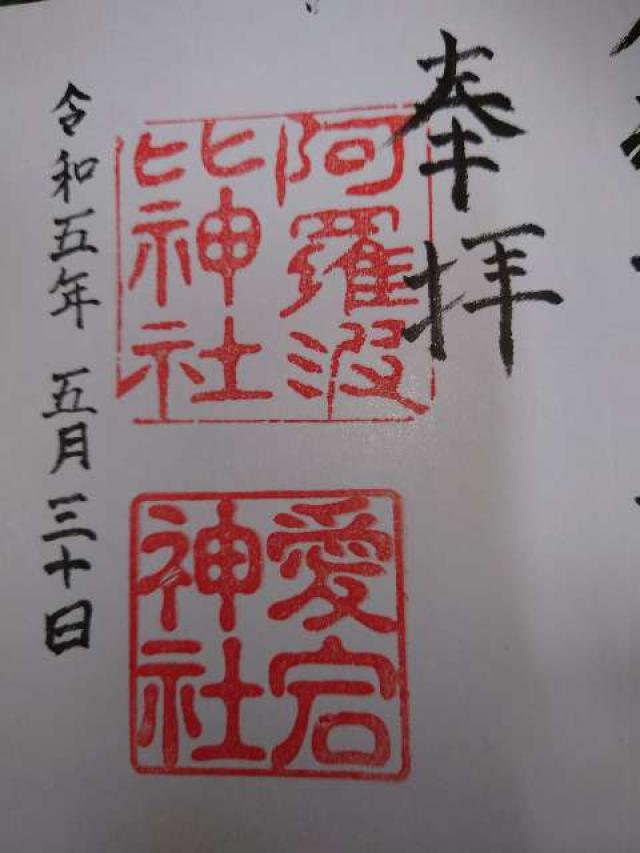 奉拝
阿羅波
比神社
愛宕
神社
令和五年 五月三十日